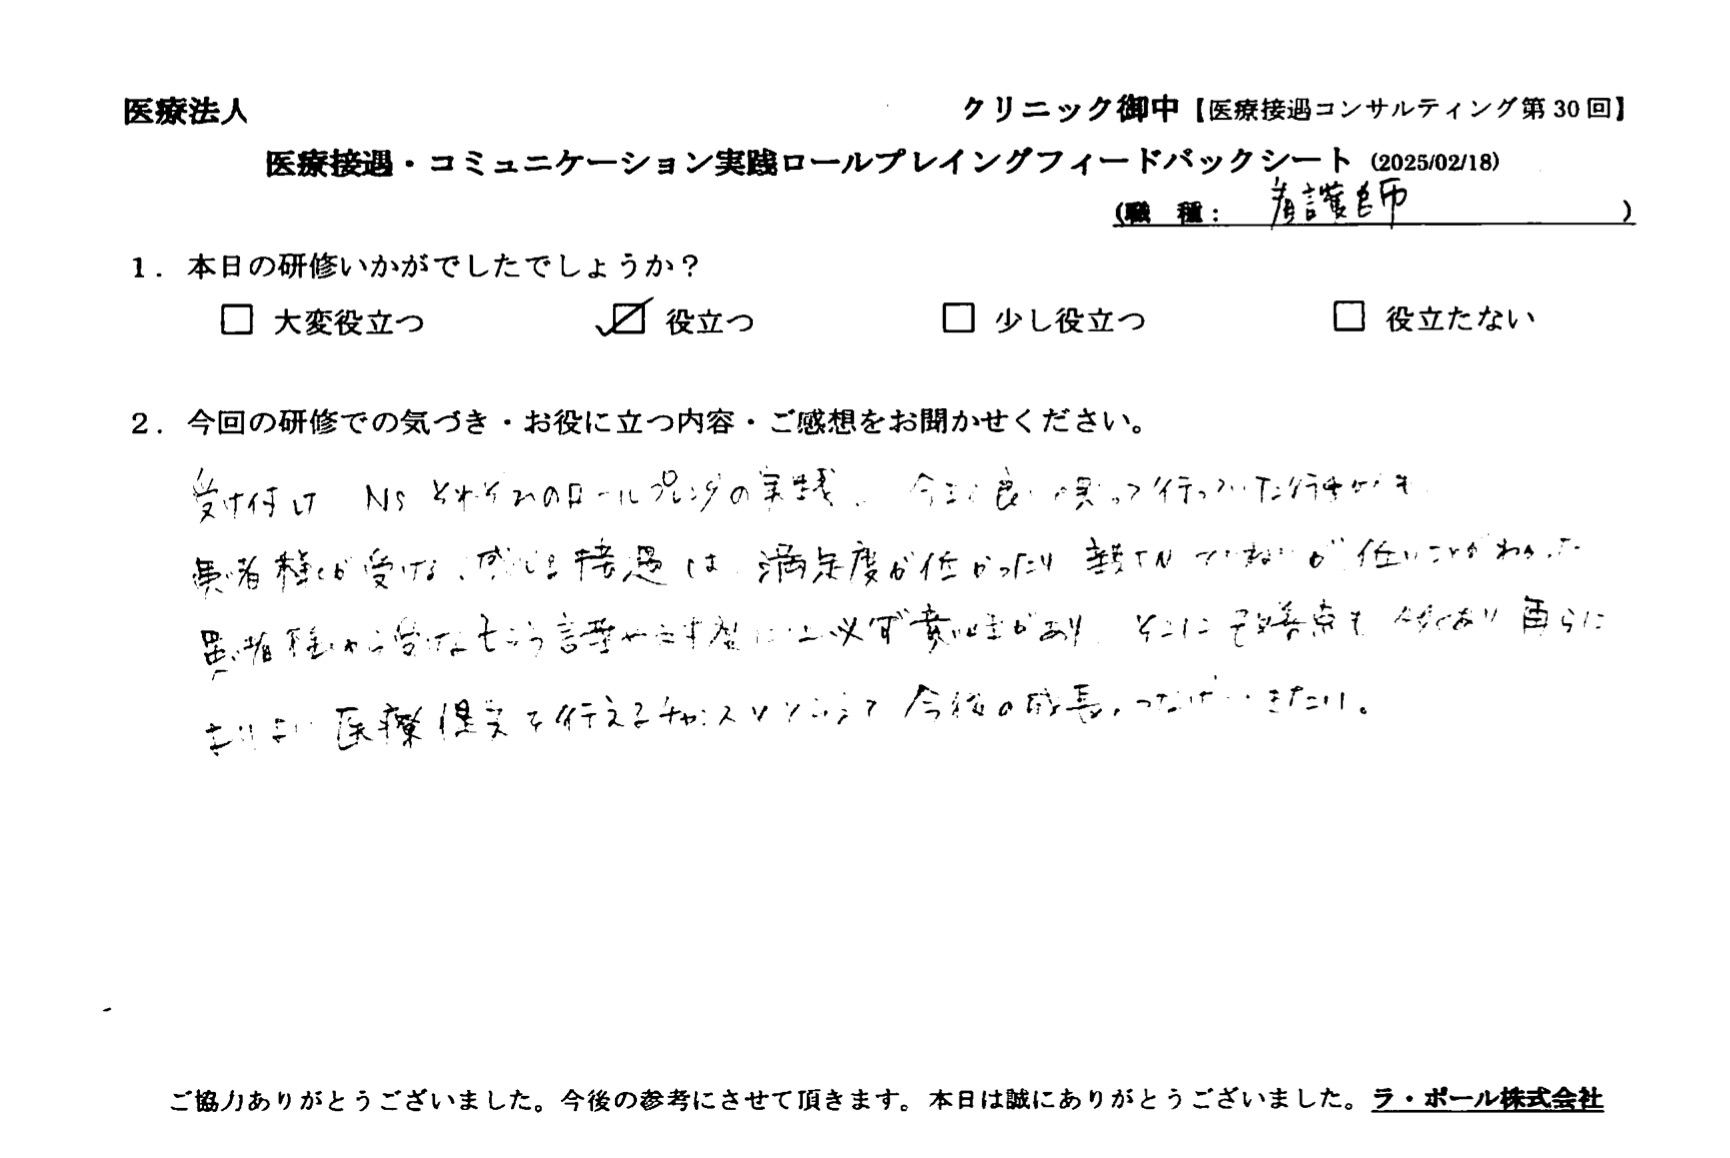 医療法人 クリニック御中【医療接遇コンサルティング第30回】
医療接遇・コミュニケーション実践ロールプレイングフィードバックシート (2025/02/18)
(職 種: 看護師 )
1. 本日の研修いかがでしたでしょうか?
□ 大変役立つ ☑ 役立つ □ 少し役立つ □ 役立たない
2. 今回の研修での気づき・お役に立つ内容・ご感想をお聞かせください。
受け付け NS それぞれのロールプレングの実践、今まで良いと思って行っていた行動が
患者様が受ける、感じる接遇は、満足度が低かったり 親切 ていねいが 低いことがわかった
患者様から受けとる 言葉や には必ず意味があり、そこに改善点も 多くあり 更らに
よりよい 医療 を行えるチャンスととらえて 今後の成長へつなげ いきたい。
ご協力ありがとうございました。今後の参考にさせて頂きます。本日は誠にありがとうございました。ラ・ポール株式会社